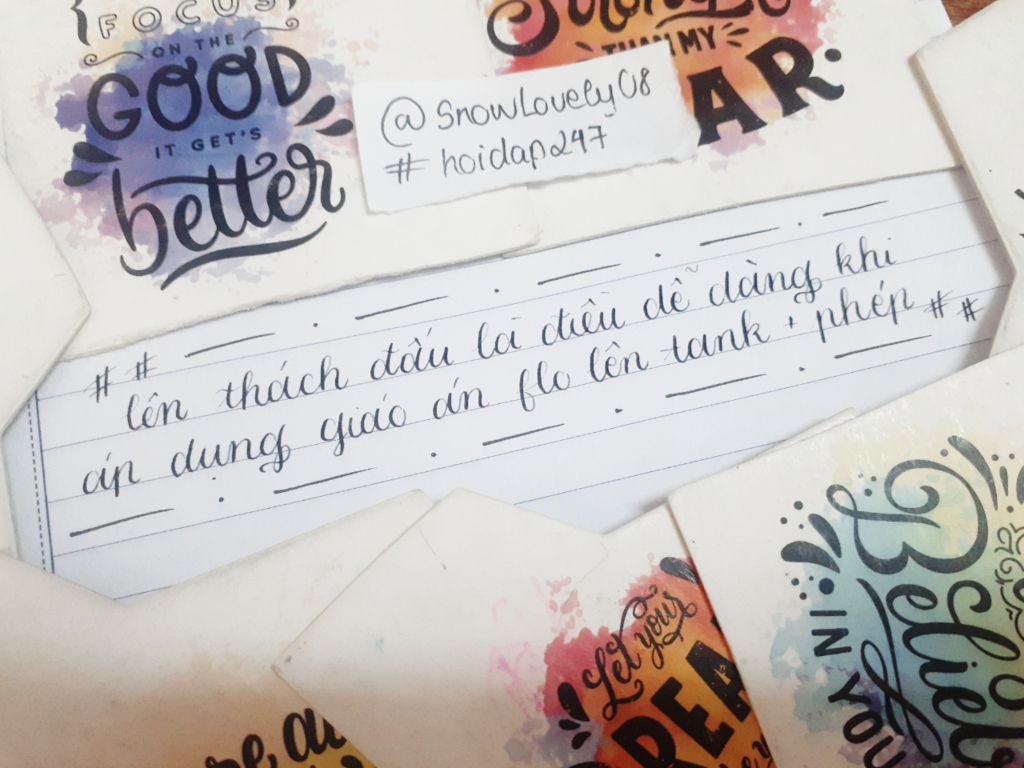 FOCUS
ON THE
GOOD
IT GET'S
better
THAN MY
AR
@SnowLovely08
# hoidap247
# # lên thách đấu là điều dễ dàng khi
áp dụng giáo án flo lên tank + phép # #
Let your
REA
Believ
IN YOU